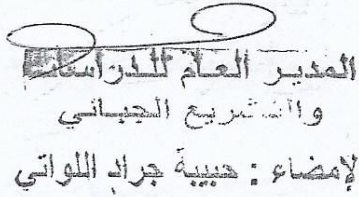 المدير العام للدراسات
والتشريع الجبائي
لإمضاء : حبيبة جراد اللواتي